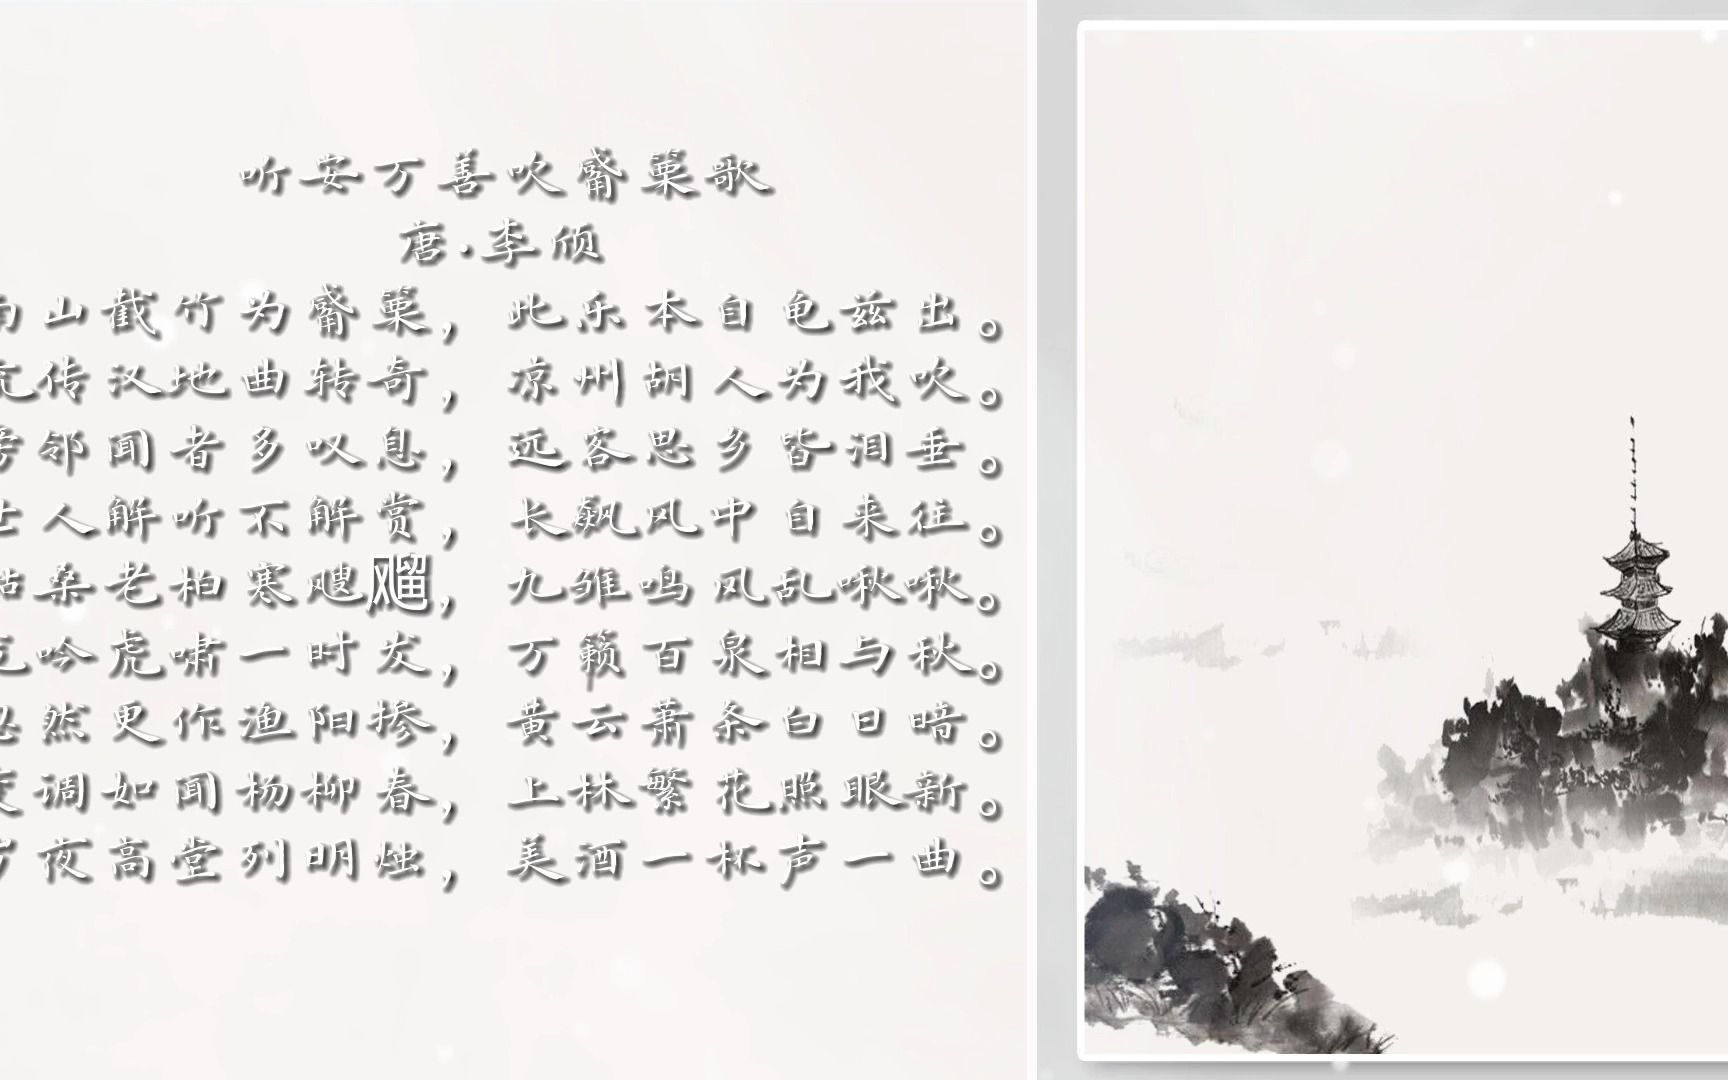 听安万善吹觱篥歌
唐·李颀
南山截竹为觱篥，此乐本自龟兹出。
流传汉地曲转奇，凉州胡人为我吹。
傍邻闻者多叹息，远客思乡皆泪垂。
世人解听不解赏，长飙风中自来往。
枯桑老柏寒飕飗，九雏鸣凤乱啾啾。
龙吟虎啸一时发，万籁百泉相与秋。
忽然更作渔阳掺，黄云萧条白日暗。
变调如闻杨柳春，上林繁花照眼新。
岁夜高堂列明烛，美酒一杯声一曲。